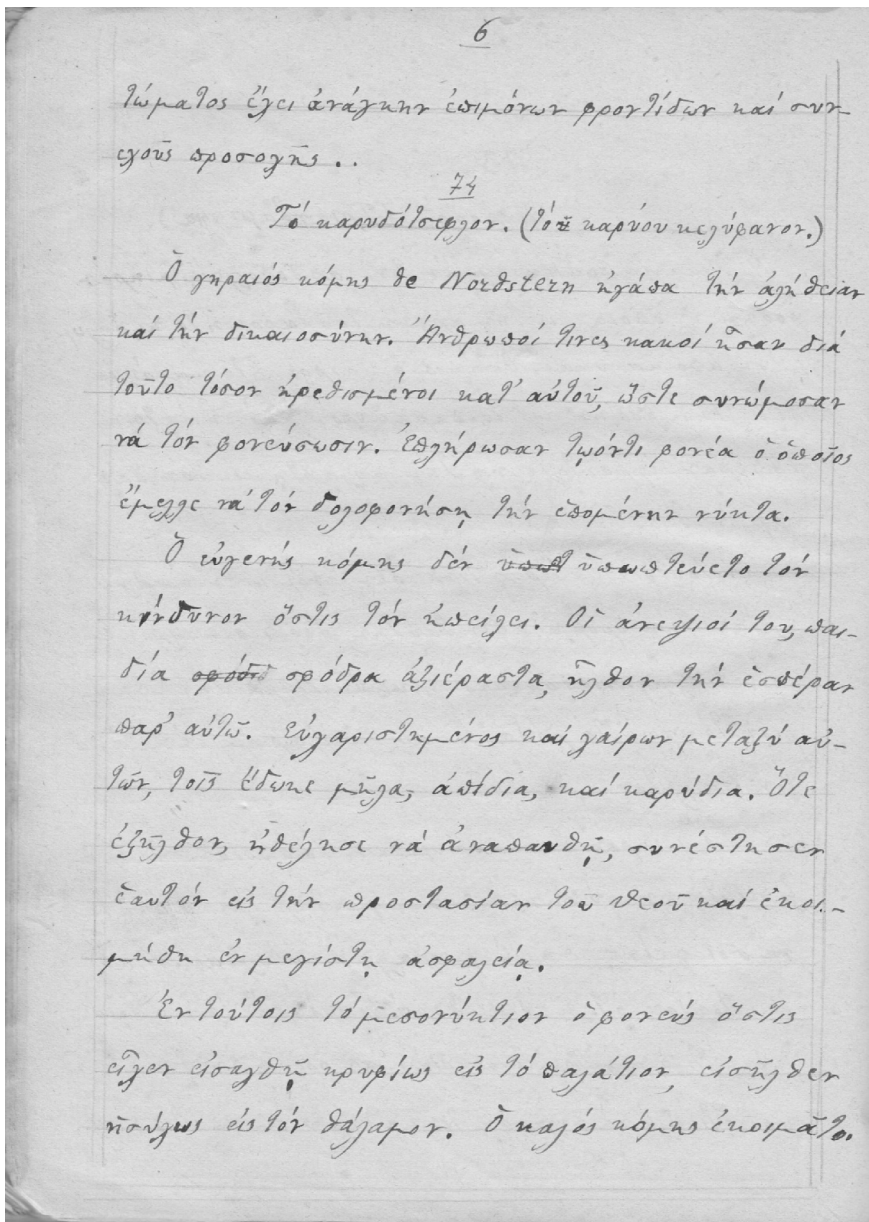 6
τώματος ἔχει ἀνάγκην ἐπιμόνων φροντίδων καί συν-
εχοῦς προσοχῆς..
74
Τό καρυδότσεφλον. (τοῦ καρύου κελύφανον.)
Ὁ γηραιός κόμης de Nordstern ἠγάπα τήν ἀλήθειαν
καί τήν δικαιοσύνην. Ἄνθρωποί τινες κακοί ἦσαν διά
τοῦτο τόσον ἠρεθισμένοι κατ' αὐτοῦ, ὥστε συνώμοσαν
νά τόν φονεύσωσιν. Ἐπλήρωσαν τῳόντι φονέα ὁ ὁποῖος
ἔμελλε νά τόν δολοφονήσῃ τήν ἑπομένην νύκτα.
Ὁ εὐγενής κόμης δέν ὑποπτεύετο τόν
κίνδυνον ὅστις τόν ἠπείλει. Οἱ ἀνεψιοί του, παι-
δία σφόδρα ἀξιέραστα, ἦλθον τήν ἑσπέραν
παρ' αὐτῷ. Εὐχαριστημένος καί χαίρων μεταξύ αὐ-
τῶν, τοῖς ἔδωκε μῆλα, ἀπίδια, καί καρύδια. Ὅτε
ἐξῆλθον, ἠθέλησε νά ἀναπαυθῇ, συνέστησεν
ἑαυτόν εἰς τήν προστασίαν τοῦ θεοῦ καί ἐκοι-
μήθη ἐν μεγίστῃ ἀσφαλείᾳ.
Ἐν τούτοις τό μεσονύκτιον ὁ φονεύς ὅστις
εἶχεν εἰσαχθῇ κρυφίως εἰς τό παλάτιον, εἰσῆλθεν
ἡσύχως εἰς τόν θάλαμον. Ὁ καλός κόμης ἐκοιμᾶτο.